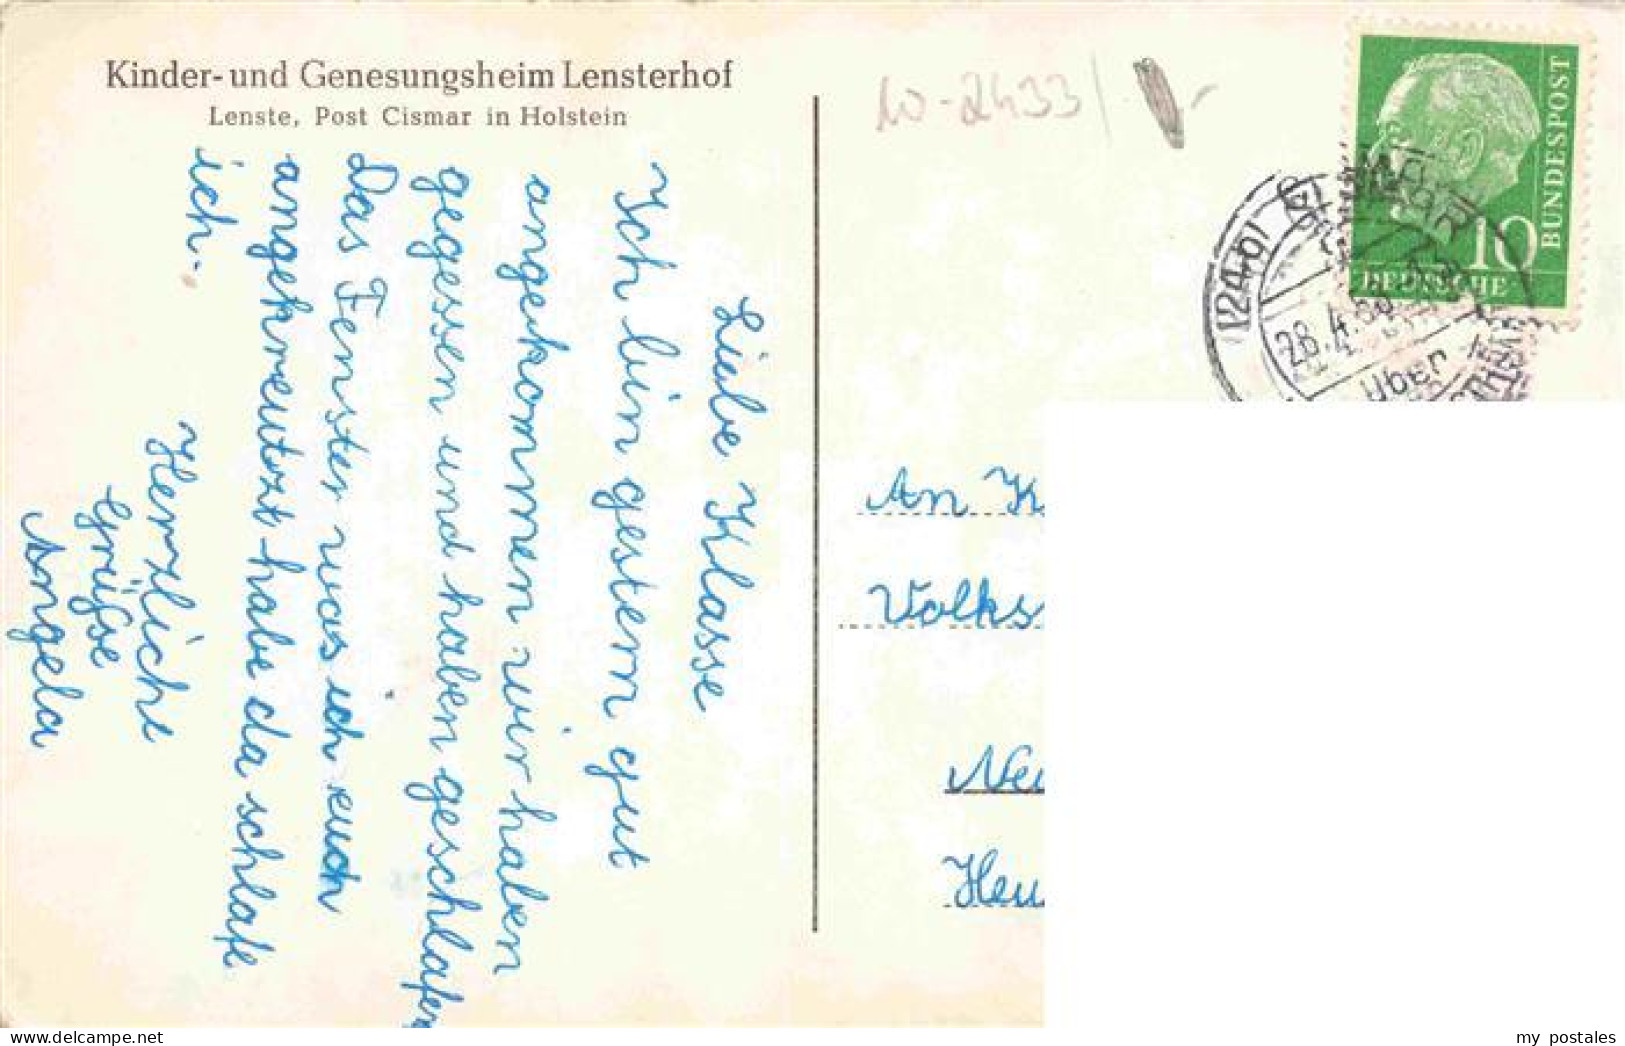 Kinder- und Genesungsheim Lensterhof
Lenste, Post Cismar in Holstein
Liebe Klasse
Ich bin gestern gut
angekommen wir haben
gegessen und haben geschlafen
Das Fenster was ich euch
angekreutzt habe da schlafe
ich.
Herzliche
Grüße
Angela
10-2433/
BUNDESPOST
10
DEUTSCHE
(24b) CISMAR
28.4.
über
An K
Volks
Neu
Heu
my postales